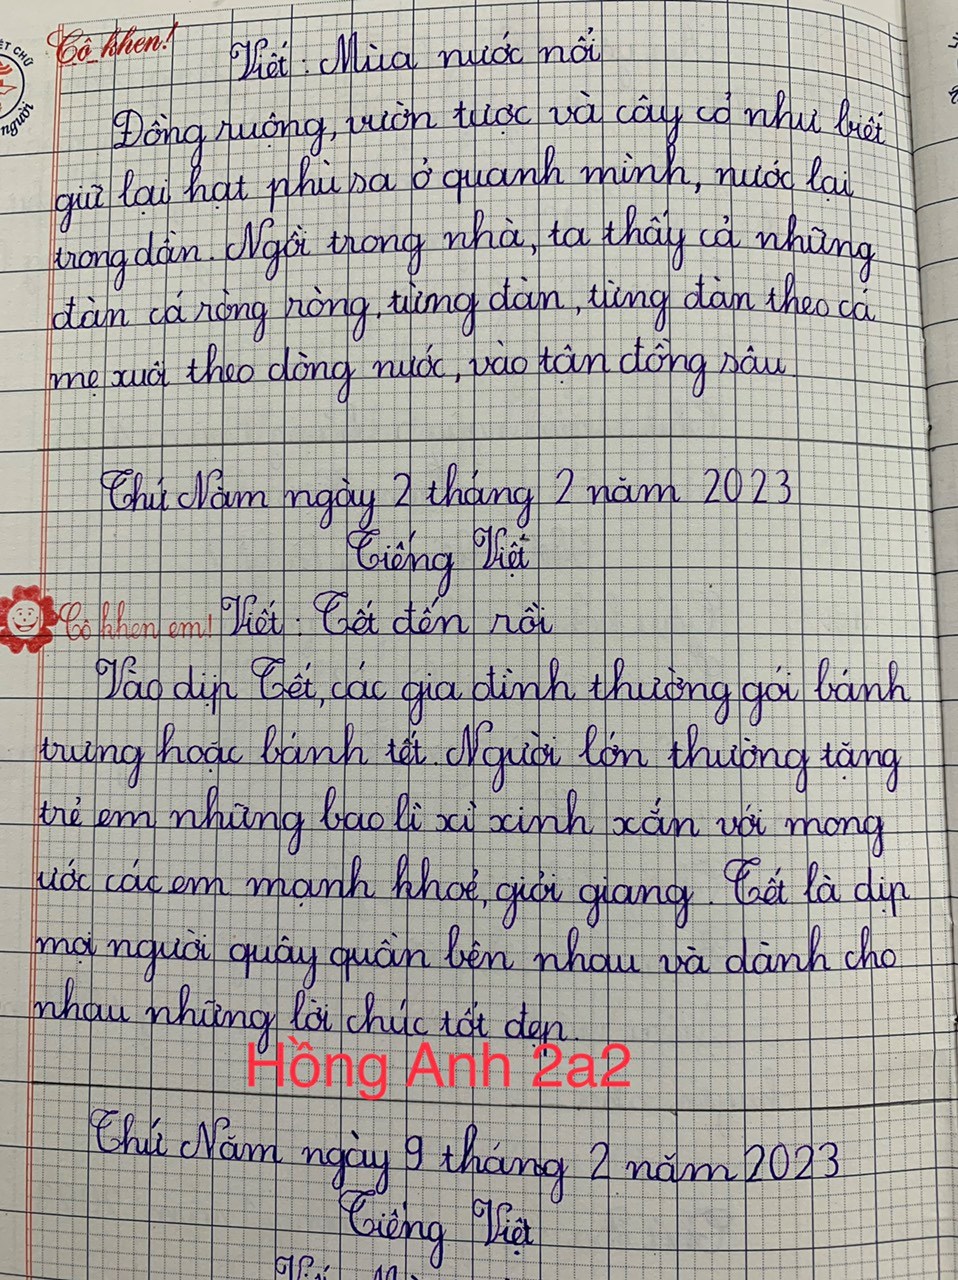 Cô khen!
ẾT CHỮ
người
Viết: Mùa nước nổi
Đồng ruộng, vườn tược và cây cỏ như biết
giữ lại hạt phù sa ở quanh mình, nước lại
trong dần. Ngồi trong nhà, ta thấy cả những
đàn cá ròng ròng, từng đàn, từng đàn theo cá
mẹ xuôi theo dòng nước, vào tận đồng sâu
Thứ Năm ngày 2 tháng 2 năm 2023
Tiếng Việt
Cô khen em! Viết: Tết đến rồi
Vào dịp Tết, các gia đình thường gói bánh
trưng hoặc bánh tét. Người lớn thường tặng
trẻ em những bao lì xì xinh xắn với mong
ước các em mạnh khoẻ, giỏi giang. Tết là dịp
mọi người quây quần bên nhau và dành cho
nhau những lời chúc tốt đẹp.
Hồng Anh 2a2
Thứ Năm ngày 9 tháng 2 năm 2023
Tiếng Việt